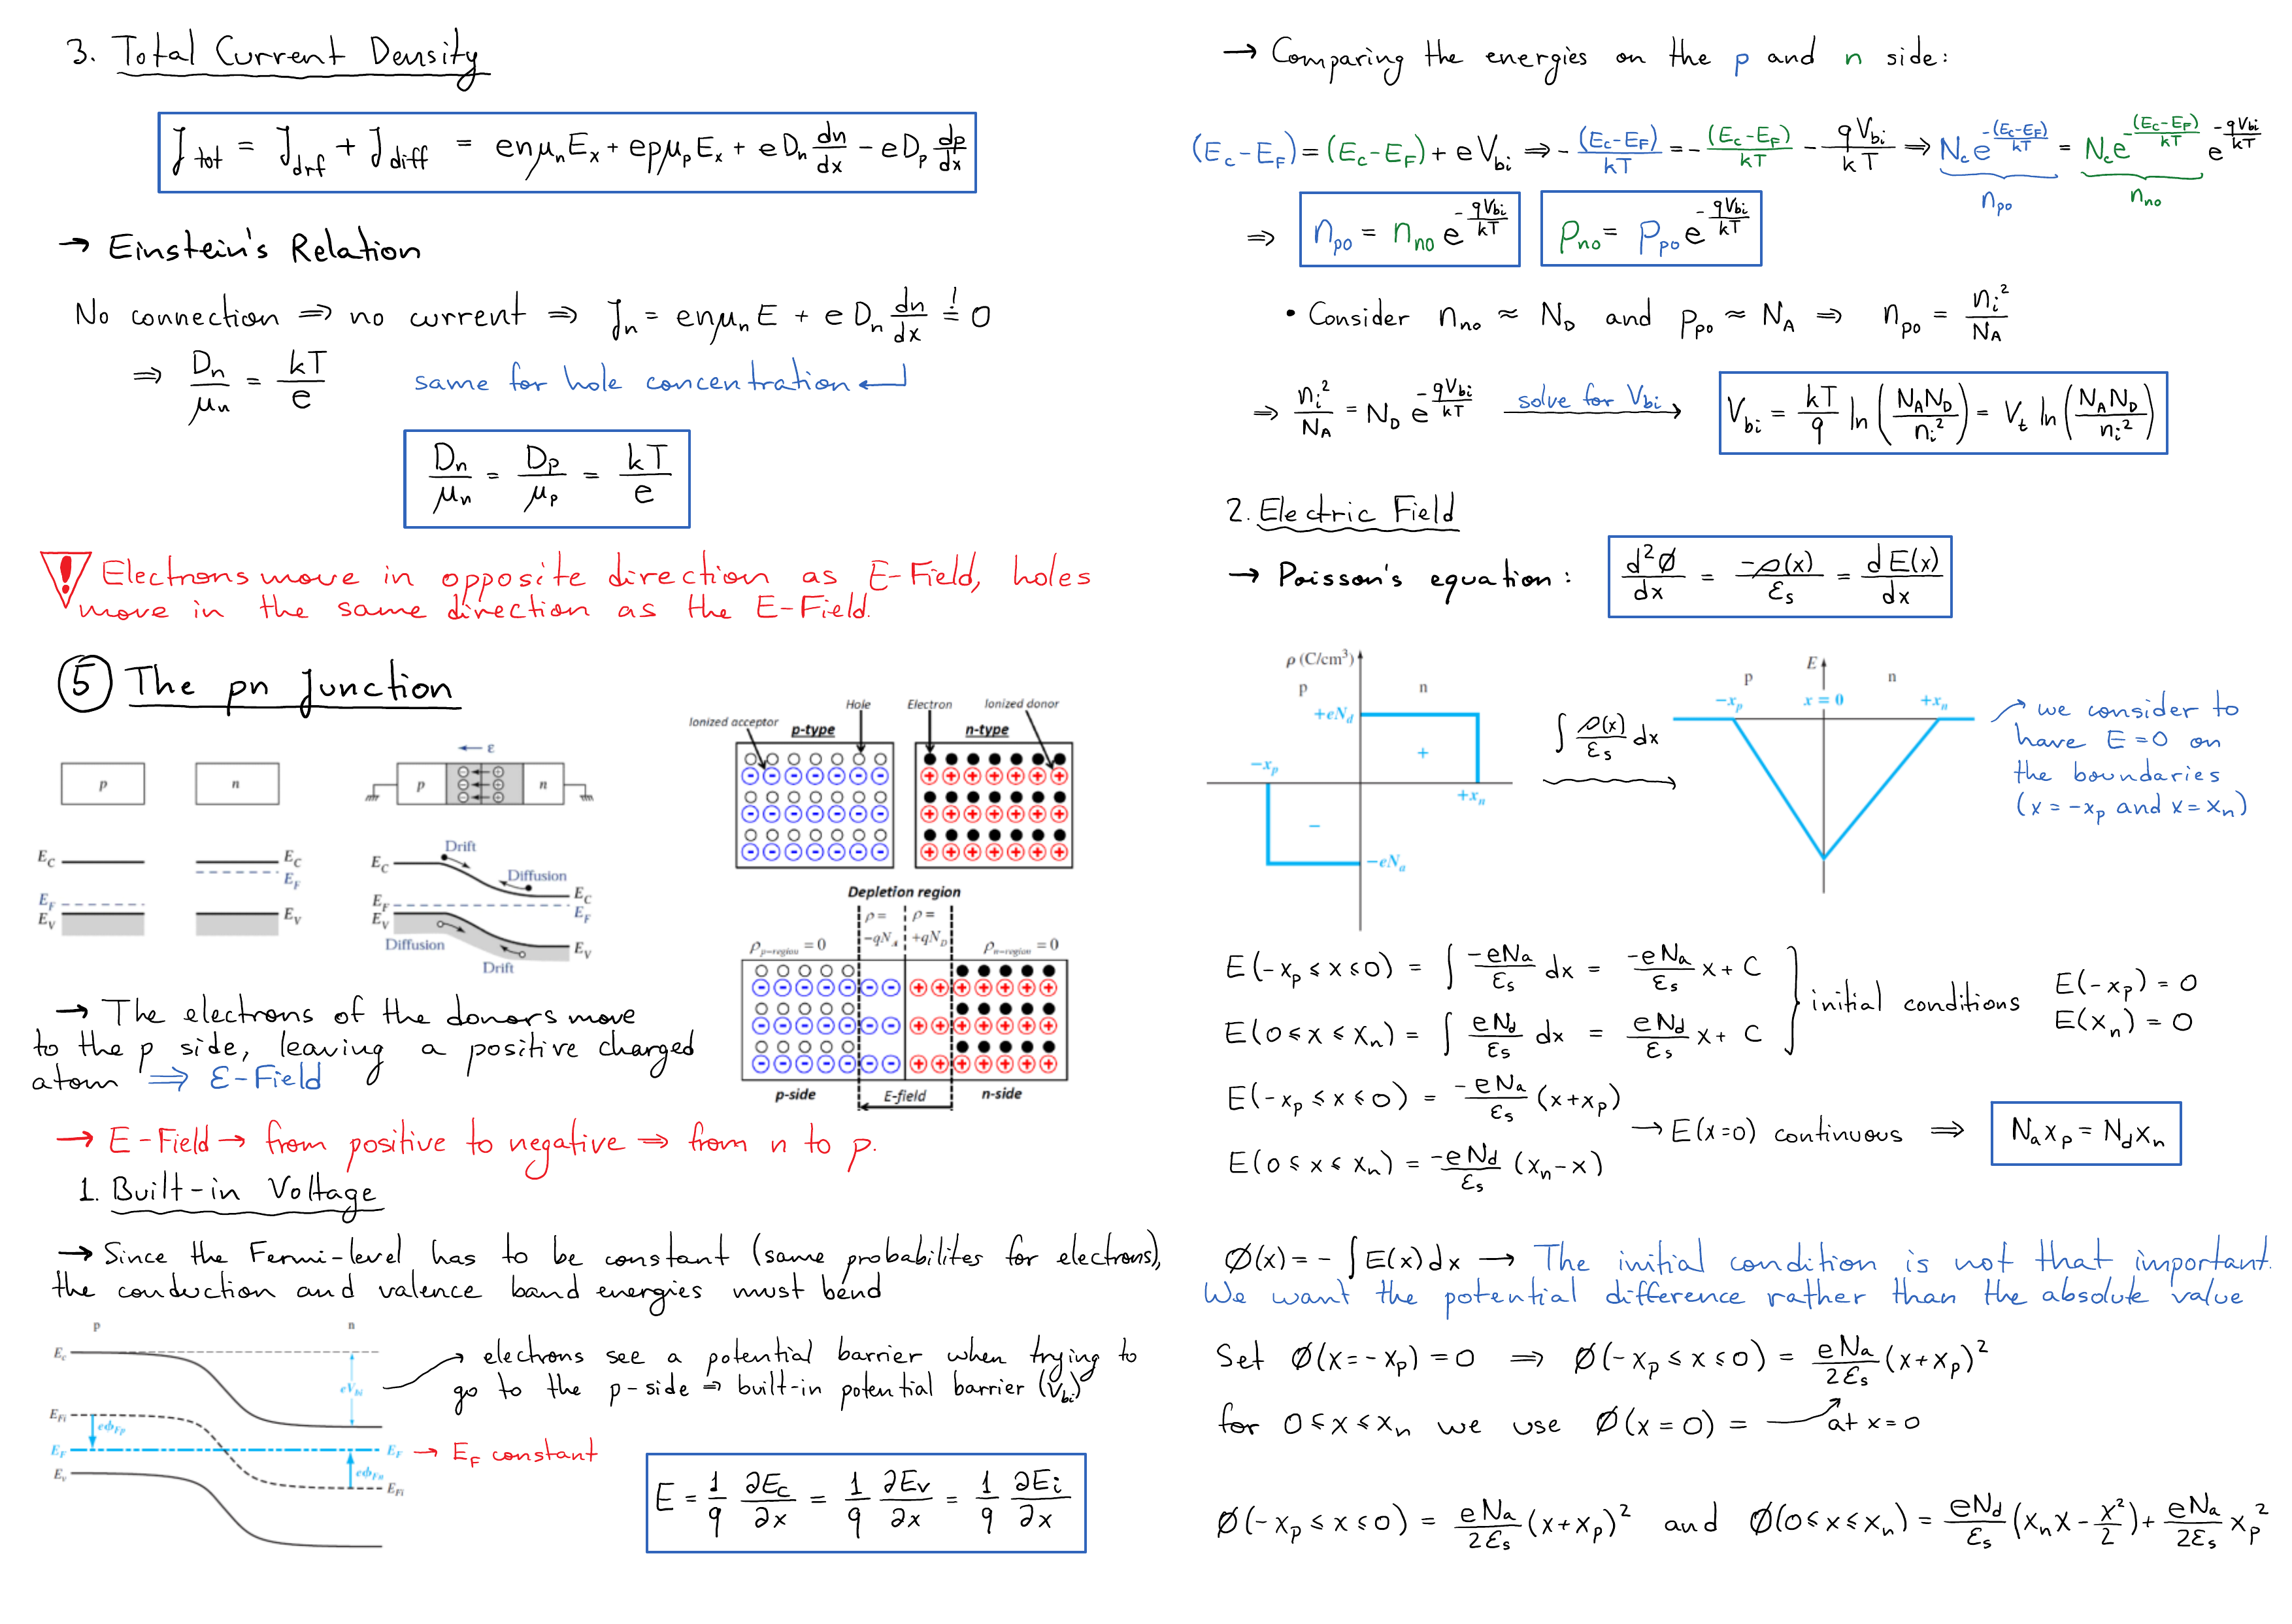 3. Total Current Density
J_tot = J_drf + J_diff = enμ_nE_x + epμ_pE_x + eD_n dn/dx - eD_p dp/dx
→ Einstein's Relation
No connection ⇒ no current ⇒ J_n = enμ_nE + eD_n dn/dx =! 0
⇒ D_n/μ_n = kT/e same for hole concentration ↵
D_n/μ_n = D_p/μ_p = kT/e
! Electrons move in opposite direction as E-Field, holes
move in the same direction as the E-Field.
⑤ The pn Junction
p n ← ε p n
E_C E_F E_V
E_C E_F E_V
E_C E_F E_V Drift Diffusion E_C E_F E_V Diffusion Drift
Hole Electron Ionized donor
Ionized acceptor p-type n-type
Depletion region
ρ = -qN_A ρ = +qN_D
ρ_p-region = 0 ρ_n-region = 0
p-side E-field n-side
→ The electrons of the donors move
to the p side, leaving a positive charged
atom ⇒ E-Field
→ E-Field → from positive to negative ⇒ from n to p.
1. Built-in Voltage
→ Since the Fermi-level has to be constant (same probabilites for electrons),
the conduction and valence band energies must bend
p n
E_c eV_bi
E_Fi eϕ_Fp
E_F E_F → E_F constant
E_v eϕ_Fn E_Fi
→ electrons see a potential barrier when trying to
go to the p-side ⇒ built-in potential barrier (V_bi)
E = 1/q ∂E_c/∂x = 1/q ∂E_v/∂x = 1/q ∂E_i/∂x
→ Comparing the energies on the p and n side:
(E_c-E_F) = (E_c-E_F) + eV_bi ⇒ -(E_c-E_F)/kT = -(E_c-E_F)/kT - qV_bi/kT ⇒ N_c e^(-(E_c-E_F)/kT) = N_c e^(-(E_c-E_F)/kT) e^(-qV_bi/kT)
n_po n_no
⇒ n_po = n_no e^(-qV_bi/kT) p_no = p_po e^(-qV_bi/kT)
• Consider n_no ≈ N_D and p_po ≈ N_A ⇒ n_po = n_i²/N_A
⇒ n_i²/N_A = N_D e^(-qV_bi/kT) solve for V_bi → V_bi = kT/q ln(N_AN_D/n_i²) = V_t ln(N_AN_D/n_i²)
2. Electric Field
→ Poisson's equation: d²Ø/dx = -ρ(x)/ε_s = dE(x)/dx
ρ (C/cm³) p n +eN_d + -x_p +x_n - -eN_a
∫ ρ(x)/ε_s dx →
E p n -x_p x = 0 +x_n
→ we consider to
have E=0 on
the boundaries
(x=-x_p and x=x_n)
E(-x_p ≤ x ≤ 0) = ∫ -eN_a/ε_s dx = -eN_a/ε_s x + C
E(0 ≤ x ≤ x_n) = ∫ eN_d/ε_s dx = eN_d/ε_s x + C
} initial conditions E(-x_p) = 0
E(x_n) = 0
E(-x_p ≤ x ≤ 0) = -eN_a/ε_s (x+x_p)
→ E(x=0) continuous ⇒ N_ax_p = N_dx_n
E(0 ≤ x ≤ x_n) = -eN_d/ε_s (x_n-x)
Ø(x) = -∫E(x)dx → The initial condition is not that important.
We want the potential difference rather than the absolute value
Set Ø(x=-x_p) = 0 ⇒ Ø(-x_p ≤ x ≤ 0) = eN_a/2ε_s (x+x_p)²
for 0 ≤ x ≤ x_n we use Ø(x=0) = at x=0
Ø(-x_p ≤ x ≤ 0) = eN_a/2ε_s (x+x_p)² and Ø(0 ≤ x ≤ x_n) = eN_d/ε_s (x_nx - x²/2) + eN_a/2ε_s x_p²